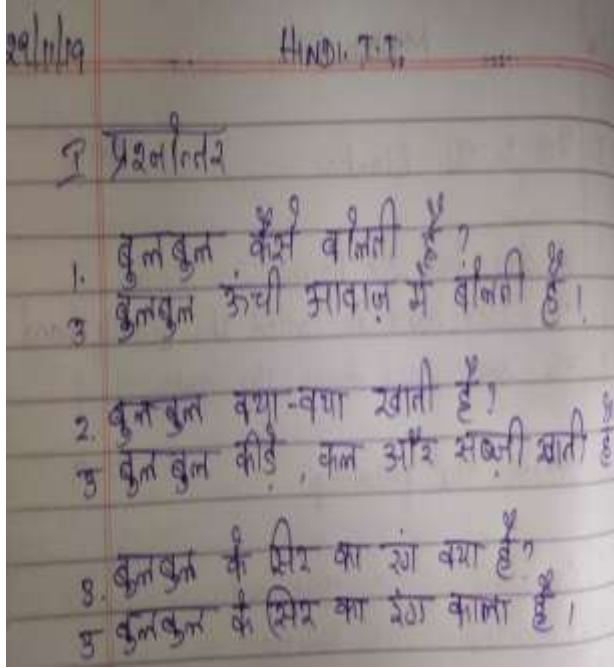 29/11/19 HINDI. T.T;
I प्रश्नोत्तर
1. बुलबुल कैसे बोलती है ?
उ बुलबुल ऊंची आवाज़ में बोलती है ।
2. बुलबुल क्या-क्या खाती है ?
उ बुलबुल कीड़े , फल और सब्ज़ी खाती है
3. बुलबुल के सिर का रंग क्या है ?
उ बुलबुल के सिर का रंग काला है ।